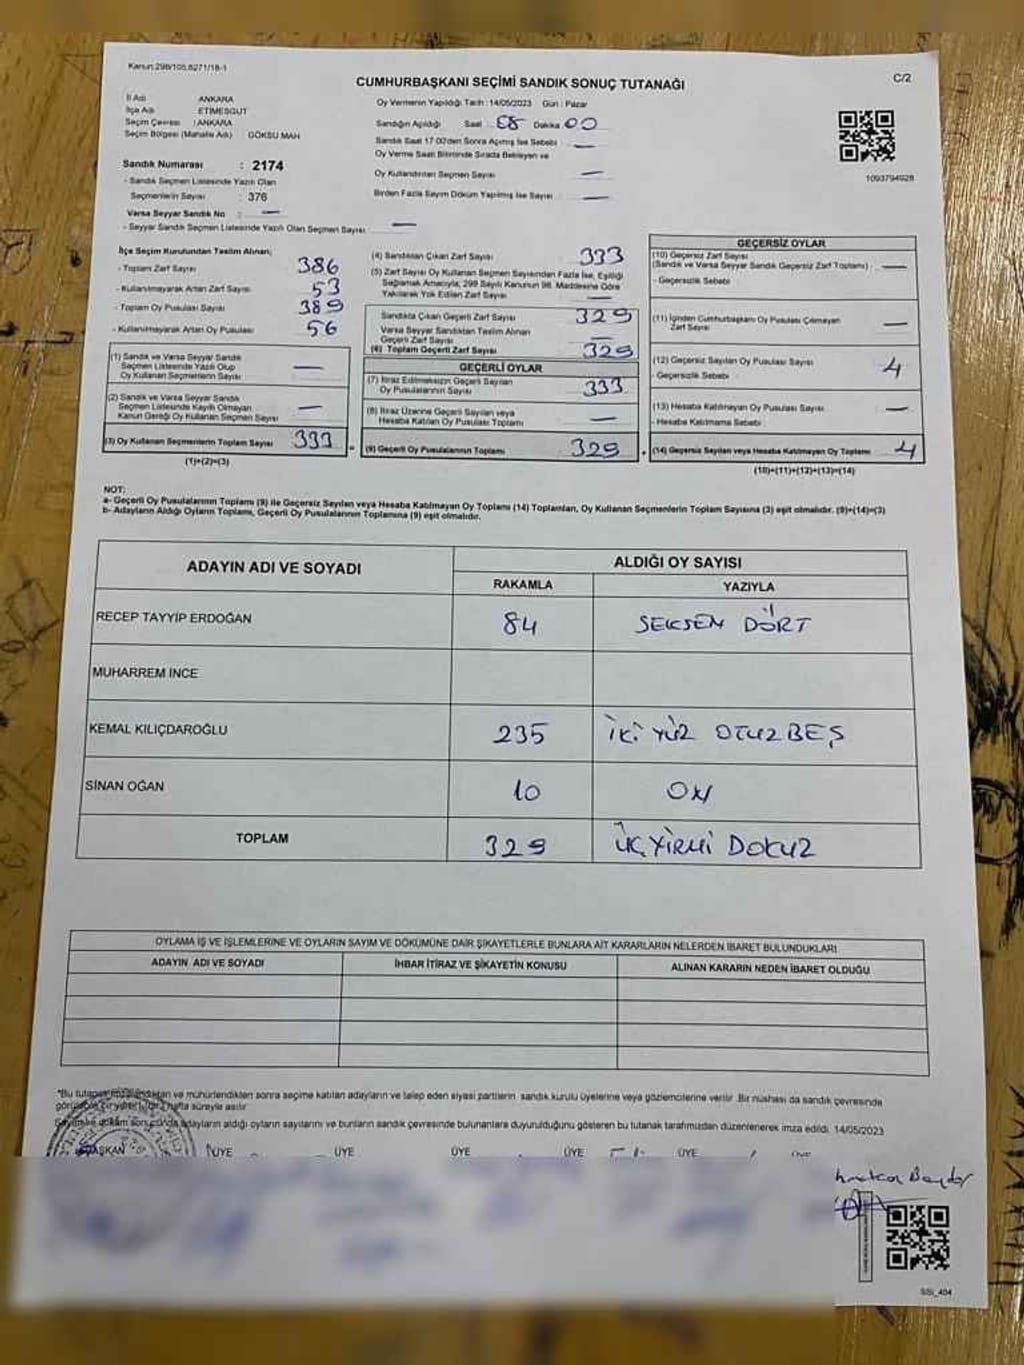 Kanun:298/105,6271/18-1
C/2
CUMHURBAŞKANI SEÇİMİ SANDIK SONUÇ TUTANAĞI
İl Adı ANKARA
İlçe Adı ETİMESGUT
Seçim Çevresi : ANKARA
Seçim Bölgesi (Mahalle Adı) GÖKSU MAH
Sandık Numarası : 2174
- Sandık Seçmen Listesinde Yazılı Olan
Seçmenlerin Sayısı : 376
Varsa Seyyar Sandık No : —
- Seyyar Sandık Seçmen Listesinde Yazılı Olan Seçmen Sayısı —
Oy Vermenin Yapıldığı Tarih : 14/05/2023 Gün : Pazar
Sandığın Açıldığı Saat : Dakika 00
Sandık Saat 17:00'den Sonra Açılmış İse Sebebi —
Oy Verme Saati Bitiminde Sırada Bekleyen ve
Oy Kullandırılan Seçmen Sayısı —
Birden Fazla Sayım Döküm Yapılmış İse Sayısı —
1093794928
İlçe Seçim Kurulundan Teslim Alınan;
- Toplam Zarf Sayısı 386
- Kullanılmayarak Artan Zarf Sayısı 53
- Toplam Oy Pusulası Sayısı 389
- Kullanılmayarak Artan Oy Pusulası 56
(1) Sandık ve Varsa Seyyar Sandık
Seçmen Listesinde Yazılı Olup
Oy Kullanan Seçmenlerin Sayısı —
(2) Sandık ve Varsa Seyyar Sandık
Seçmen Listesinde Kayıtlı Olmayan
Kanun Gereği Oy Kullanan Seçmen Sayısı —
(3) Oy Kullanan Seçmenlerin Toplam Sayısı 333
(1)+(2)=(3)
(4) Sandıktan Çıkan Zarf Sayısı 333
(5) Zarf Sayısı Oy Kullanan Seçmen Sayısından Fazla İse, Eşitliği
Sağlamak Amacıyla; 298 Sayılı Kanunun 98. Maddesine Göre
Yakılarak Yok Edilen Zarf Sayısı —
Sandıkta Çıkan Geçerli Zarf Sayısı 329
Varsa Seyyar Sandıktan Teslim Alınan
Geçerli Zarf Sayısı —
(6) Toplam Geçerli Zarf Sayısı 329
GEÇERLİ OYLAR
(7) İtiraz Edilmeksizin Geçerli Sayılan
Oy Pusulalarının Sayısı 333
(8) İtiraz Üzerine Geçerli Sayılan veya
Hesaba Katılan Oy Pusulası Toplamı —
(9) Geçerli Oy Pusulalarının Toplamı 329
GEÇERSİZ OYLAR
(10) Geçersiz Zarf Sayısı
(Sandık ve Varsa Seyyar Sandık Geçersiz Zarf Toplamı) —
- Geçersizlik Sebebi
(11) İçinden Cumhurbaşkanı Oy Pusulası Çıkmayan
Zarf Sayısı —
(12) Geçersiz Sayılan Oy Pusulası Sayısı 4
- Geçersizlik Sebebi
(13) Hesaba Katılmayan Oy Pusulası Sayısı —
- Hesaba Katılmama Sebebi
(14) Geçersiz Sayılan veya Hesaba Katılmayan Oy Toplamı 4
(10)+(11)+(12)+(13)=(14)
NOT:
a- Geçerli Oy Pusulalarının Toplamı (9) ile Geçersiz Sayılan veya Hesaba Katılmayan Oy Toplamı (14) Toplamları, Oy Kullanan Seçmenlerin Toplam Sayısına (3) eşit olmalıdır. (9)+(14)=(3)
b- Adayların Aldığı Oyların Toplamı, Geçerli Oy Pusulalarının Toplamına (9) eşit olmalıdır.
ADAYIN ADI VE SOYADI ALDIĞI OY SAYISI
RAKAMLA YAZIYLA
RECEP TAYYİP ERDOĞAN 84 SEKSEN DÖRT
MUHARREM İNCE
KEMAL KILIÇDAROĞLU 235 İKİ YÜZ OTUZBEŞ
SİNAN OĞAN 10 ON
TOPLAM 329 ÜÇYİRMİ DOKUZ
OYLAMA İŞ VE İŞLEMLERİNE VE OYLARIN SAYIM VE DÖKÜMÜNE DAİR ŞİKAYETLERLE BUNLARA AİT KARARLARIN NELERDEN İBARET BULUNDUKLARI
ADAYIN ADI VE SOYADI İHBAR İTİRAZ VE ŞİKAYETİN KONUSU ALINAN KARARIN NEDEN İBARET OLDUĞU
*Bu tutanak imzalandıktan ve mühürlendikten sonra seçime katılan adayların ve talep eden siyasi partilerin sandık kurulu üyelerine veya gözlemcilerine verilir. Bir nüshası da sandık çevresinde
görülebilecek yere 1 hafta süreyle asılır.
Sayım ve döküm sonucunda adayların aldığı oyların sayılarını ve bunların sandık çevresinde bulunanlara duyurulduğunu gösteren bu tutanak tarafımızdan düzenlenerek imza edildi. 14/05/2023
BAŞKAN ÜYE ÜYE ÜYE ÜYE ÜYE ÜYE
SSİ_404